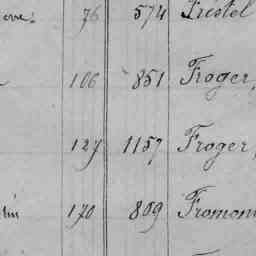 76 574 Frestel
106 851 Froger,
127 1157 Froger,
lin 170 809 Fromon